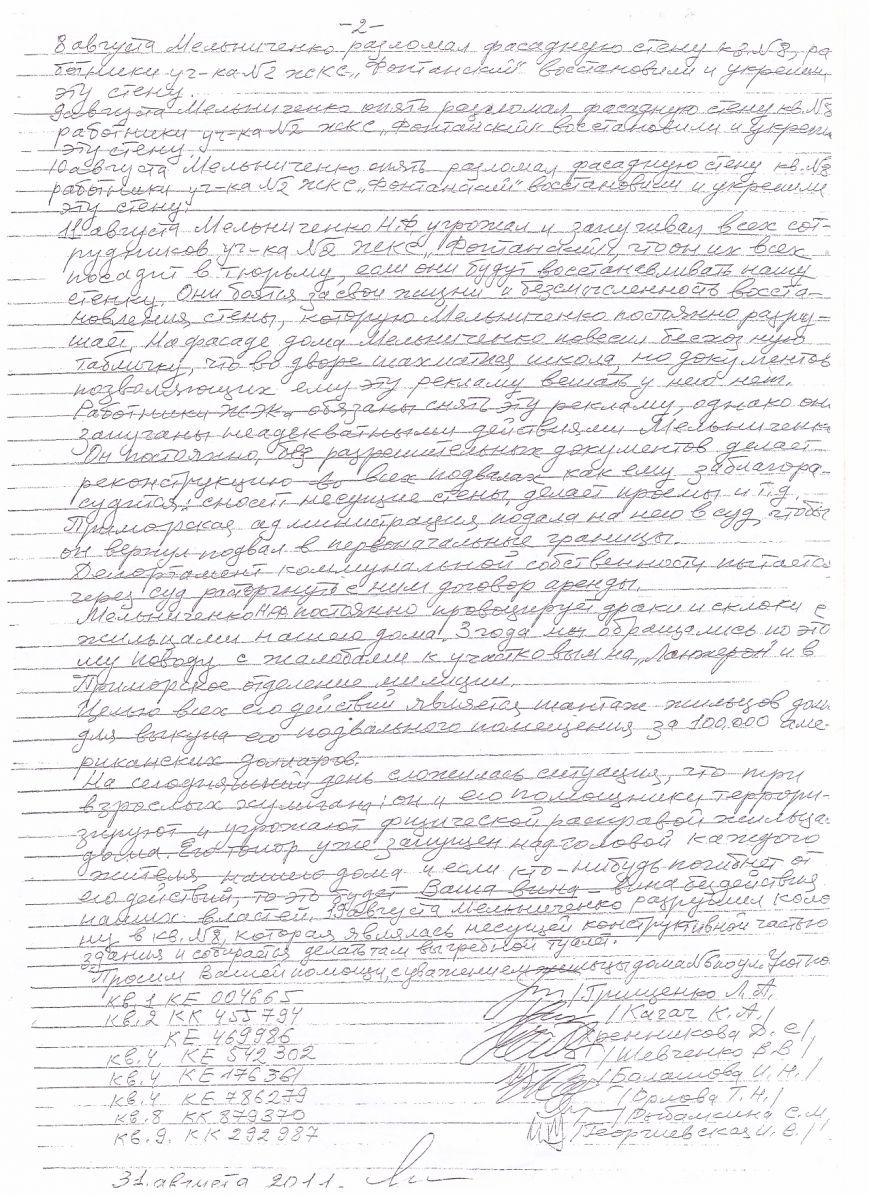 -2-
8 августа Мельниченко разломал фасадную стену кв.№8, ра
ботники уч-ка №2 ЖКС „Фонтанский" восстановили и укрепили
эту стену.
9 августа Мельниченко опять разломал фасадную стену кв.№8
работники уч-ка №2 ЖКС „Фонтанский" восстановили и укрепи
эту стену.
10 августа Мельниченко опять разломал фасадную стену кв.№8
работники уч-ка №2 ЖКС „Фонтанский" восстановили и укрепили
эту стену.
11 августа Мельниченко Н.Ф угрожал и запугивал всех сот-
рудников уч-ка №2 ЖКС „Фонтанский", что он их всех
посадит в тюрьму, если они будут восстанавливать нашу
стенку. Они боятся за свои жизни и безсмысленность восста-
новления стены, которую Мельниченко постоянно разру-
шает. На фасаде дома Мельниченко повесил бесхозную
табличку, что во дворе шахматная школа, но документов
позволяющих ему эту рекламу вешать у него нет.
Работники ЖЭКа обязаны снять эту рекламу, однако они
запуганы неадекватными действиями Мельниченко
Он постоянно, без разрешительных документов делает
реконструкцию во всех подвалах как ему заблагора-
судится: сносет несущие стены, делает проемы и т.д.
Приморская администрация подала на него в суд, чтобы
он вернул подвал в первоначальные границы.
Департамент коммунальной собственности пытается
через суд расторгнуть с ним договор аренды.
Мельниченко Н.Ф постоянно провоцирует драки и склоки с
жильцами нашего дома. 3 года мы обращались по это
му поводу с жалобами к участковым на „Ланжерон" и в
Приморское отделение милиции.
Целью всех его действий является шантаж жильцов дома
для выкупа его подвального помещения за 100.000 аме-
риканских долларов.
На сегодняшний день сложилась ситуация, что три
взрослых хулигана: он и его помощники террори-
зируют и угрожают физической расправой жильца
дома. Его топор уже запущен над головой каждого
жителя нашего дома и если кто-нибудь погибнет от
его действий, то это будет Ваша вина - вина бездействия
наших властей. 19 августа Мельниченко разрушил коло
ну в кв.№8, которая являлась несущей конструктивной частью
здания и собирается делать там выгребной туалет.
Просим Вашей помощи, с уважением жильцы дома №6 по ул.
кв.1 КЕ 004665 /Грищенко Л.А.
кв.2 КК 455794 /Кагач К.А./
КЕ 469986 Хренникова Д.С/
кв.4. КЕ 542302 /Шевченко В.В/
кв.4 КЕ 176361 /Балашова И.Н./
кв.4 КЕ 786279 /Орлова Т.Н./
кв.8 КК 879370 /Рыбамкина С.М
кв.9. КК 292987 /Георгиевская И.В./
31. августа 2011.